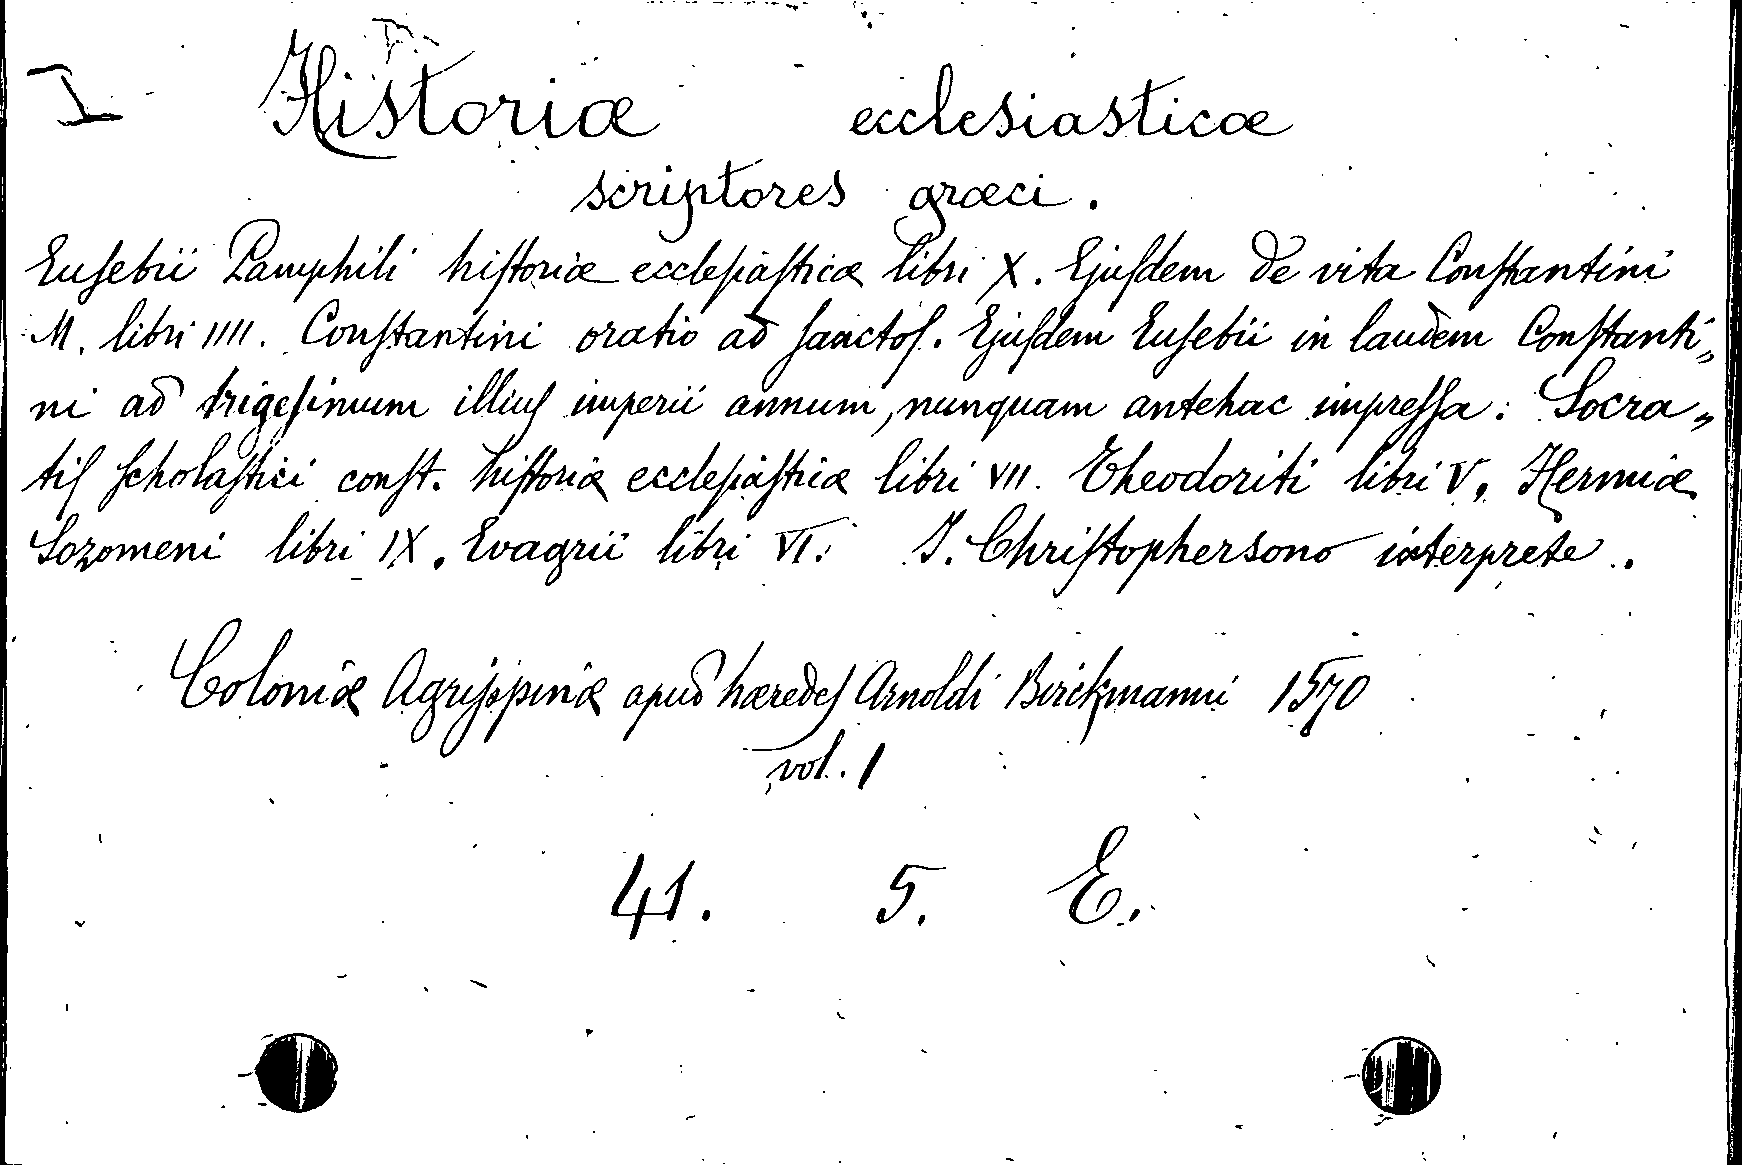 I Historiæ ecclesiasticæ
scriptores græci.
Eusebii Pamphili historiæ ecclesiasticæ libri X. Ejusdem de vita Constantini
M. libri IIII. Constantini oratio ad sanctos. Ejusdem Eusebii in laudem Constanti„
ni ad trigesimum illius imperii annum, nunquam antehac impressa: Socra„
tis scholastici const. historiæ ecclesiasticæ libri VII. Theodoriti libri V, Hermiæ
Sozomeni libri IX. Evagrii libri VI. J. Christophersono interprete.
Coloniæ Agrippinæ apud hæredes Arnoldi Birckmanni 1570
vol. 1
41. 5. E.